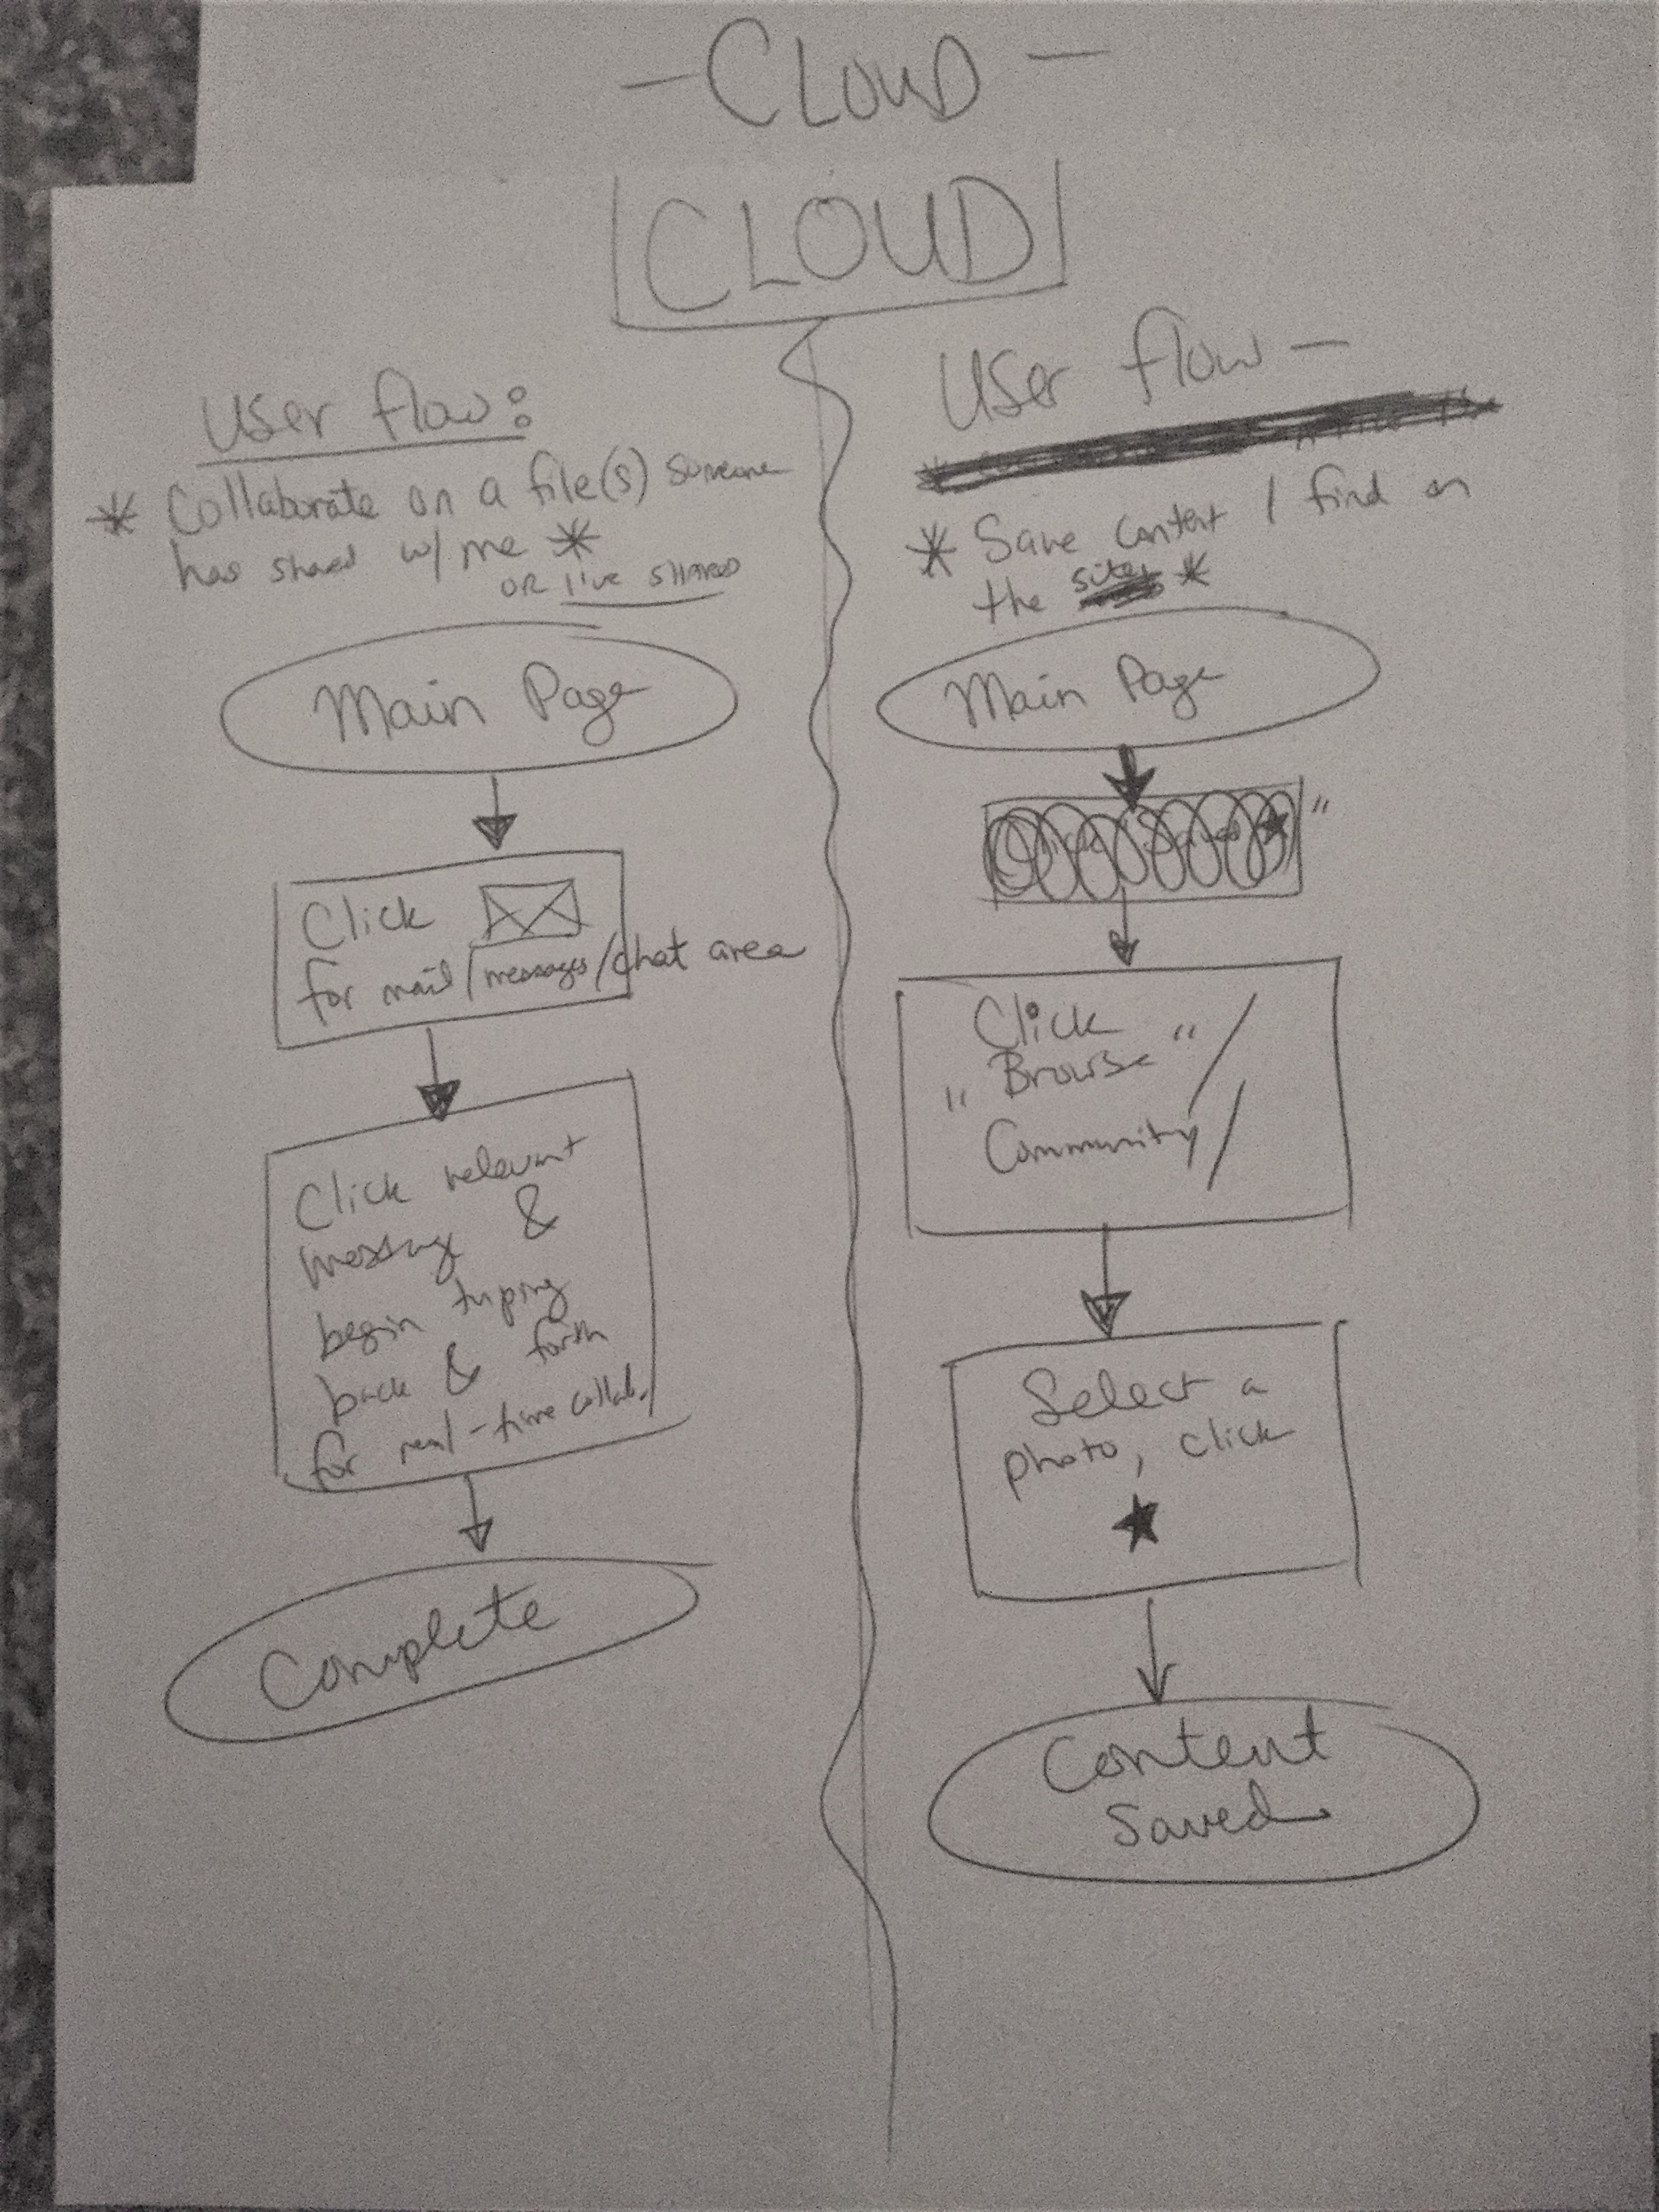 - CLOUD -
CLOUD
User flow:
* Collaborate on a file(s) someone
has shared w/ me *
OR I've SHARED
Main Page
Click
for mail/messages/chat area
Click relevant
message &
begin typing
back & forth
for real-time collab.
Complete
User flow -
* Save content I find on
the site *
Main Page
"
Click
"Browse"/
Community/
Select a
photo, click
★
Content
Saved